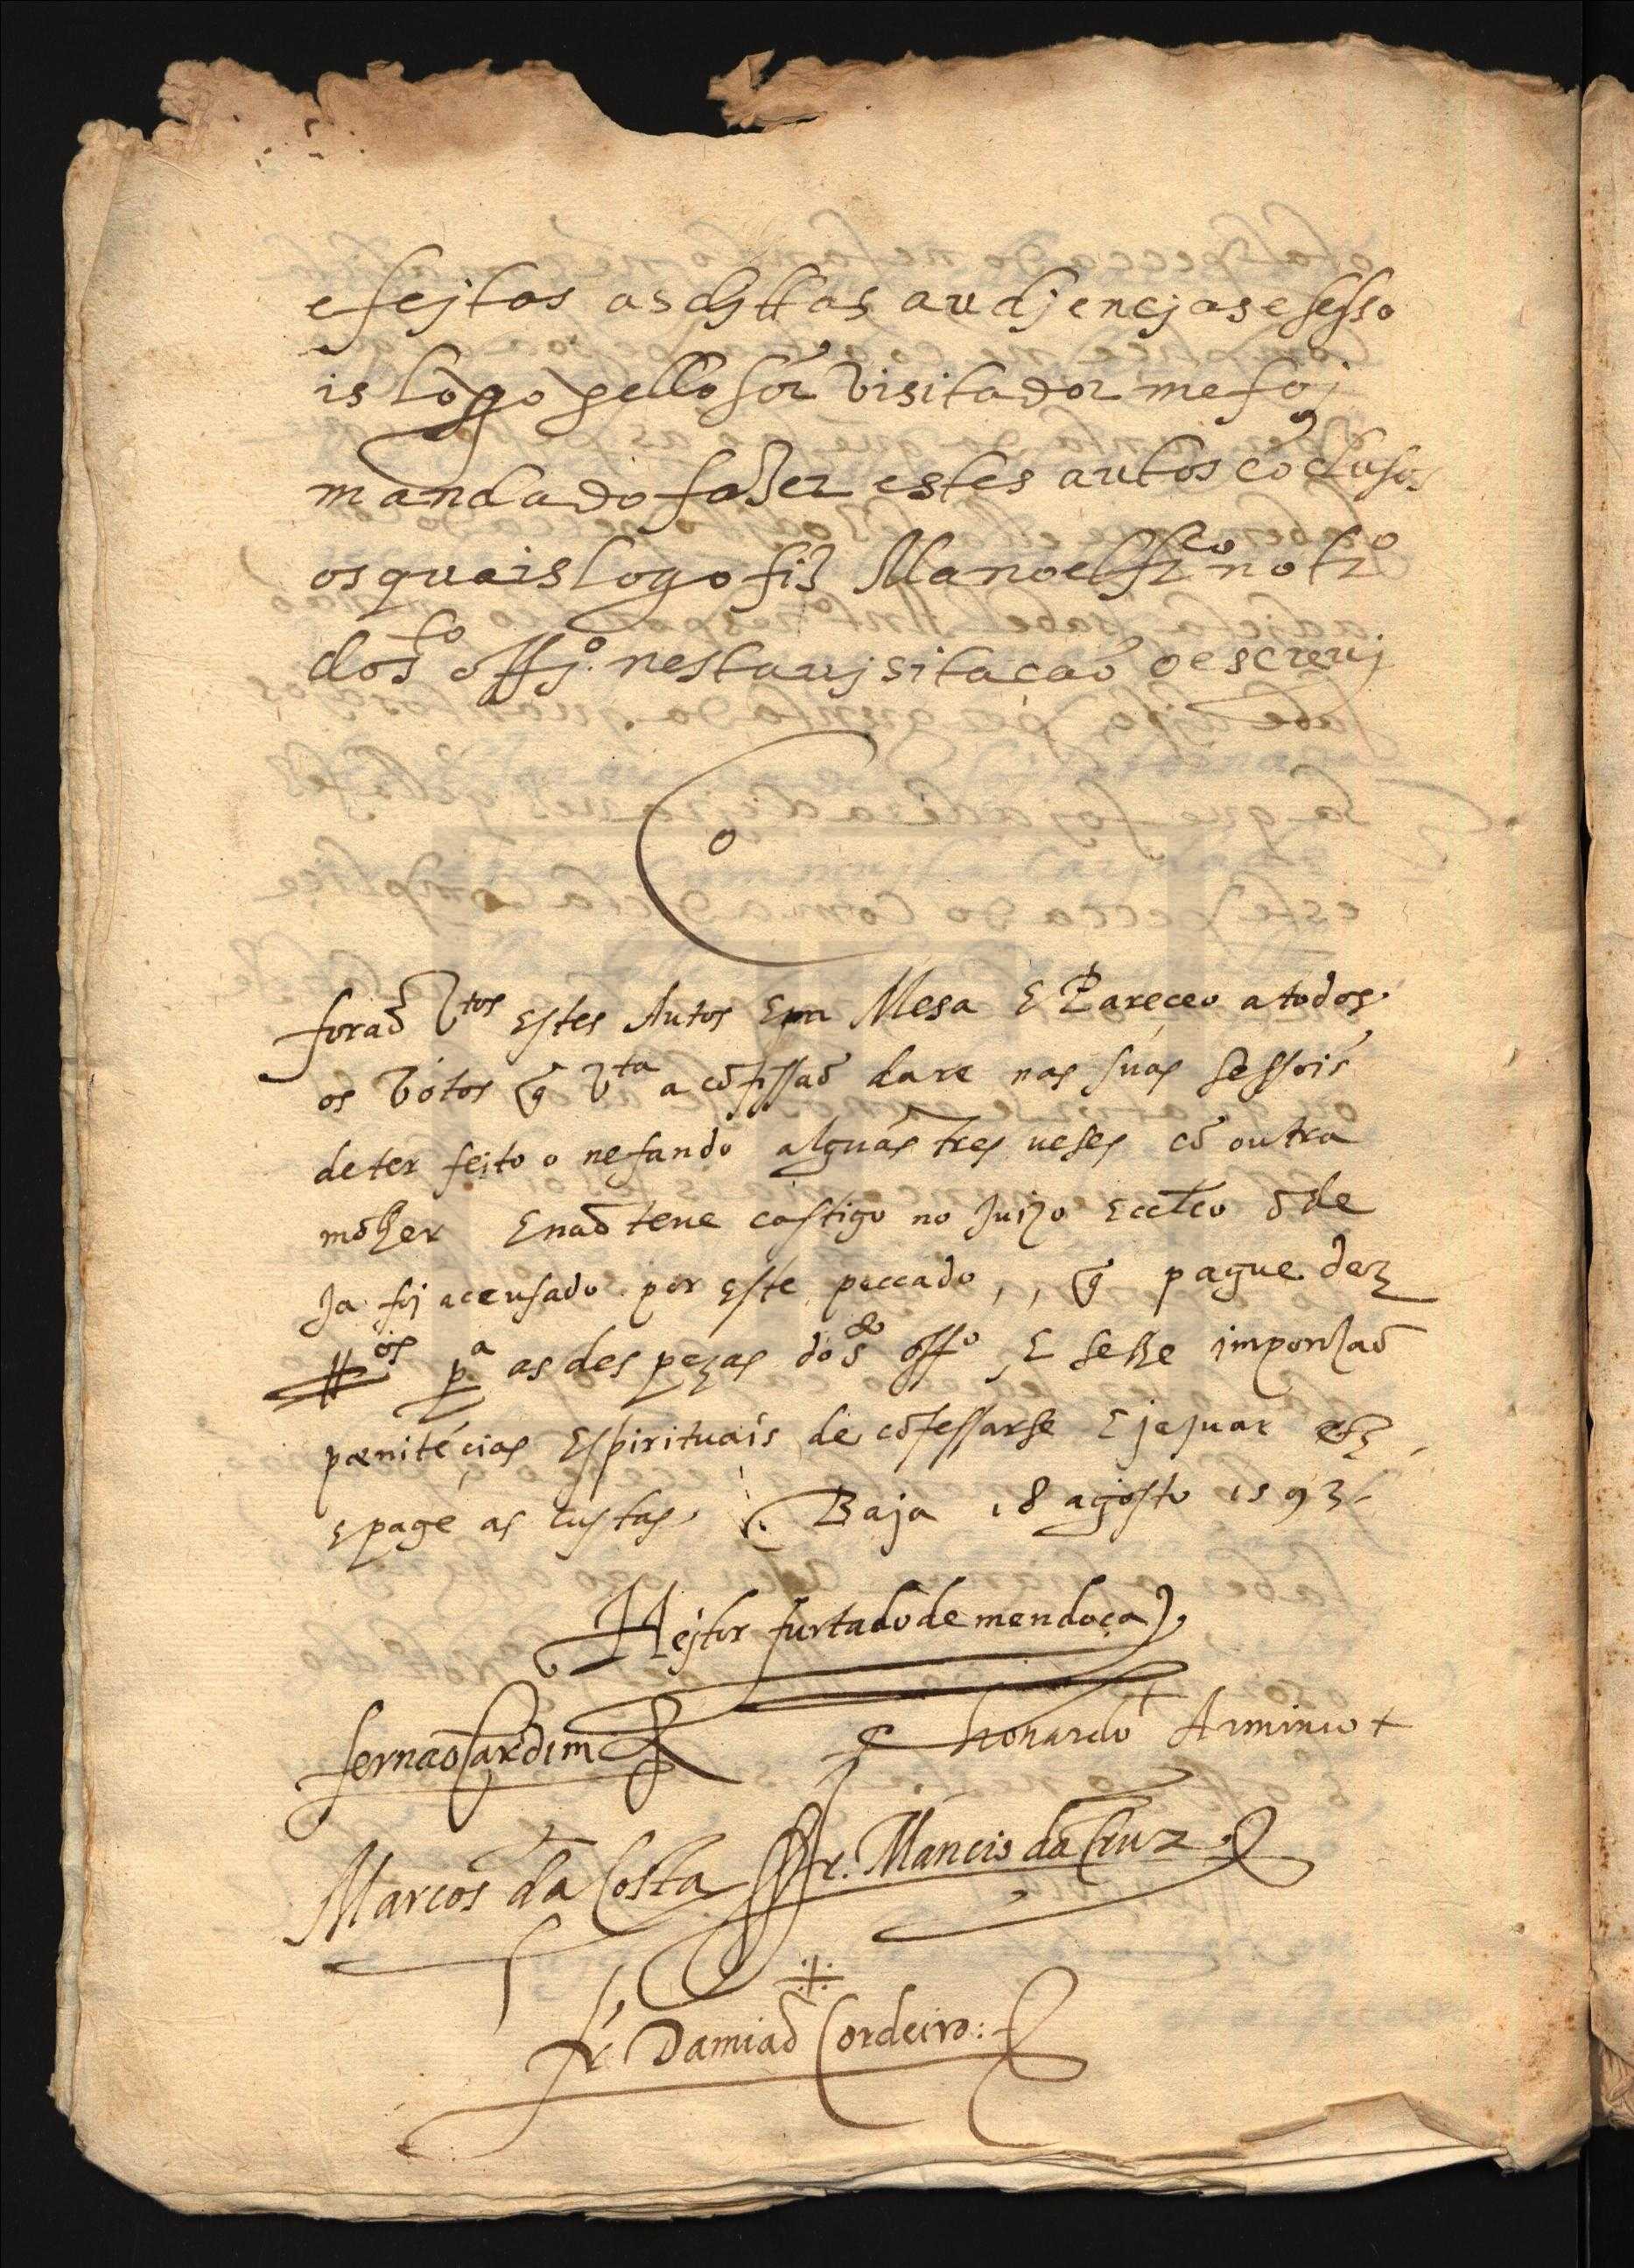 e fejtas as dyttas audjencjas e sesso
is logo pello sõr visitador me foj
mandado fazer estes autos cõclusos
os quais logo fiz Manoel frco notro
do sto offjo. nesta vjsitação o escrevj
forão vtos estes Autos Em Mesa E Pareceo a todos
os votos q̃ vta a cõfissaõ da re nas suas sessois
de ter feito o nefando alguãs tres veses cõ outra
molher E naõ teve castigo no Juizo Eccleco õde
Ja foj acusado por este peccado,, q̃ pague dez
#dos pa as despezas do sto offo, E selhe imponhaõ
pænitẽçias Espirituais de cõfessarse E jejuar etz
E page as custas. Baja 18 agosto 1593
Hejtor furtado de mendoça
fernaõ Cardim
Leonardo Arminio +
Marcos da Costa
fr. Mancio da Cruz
fr. Damiaõ Cordeiro: